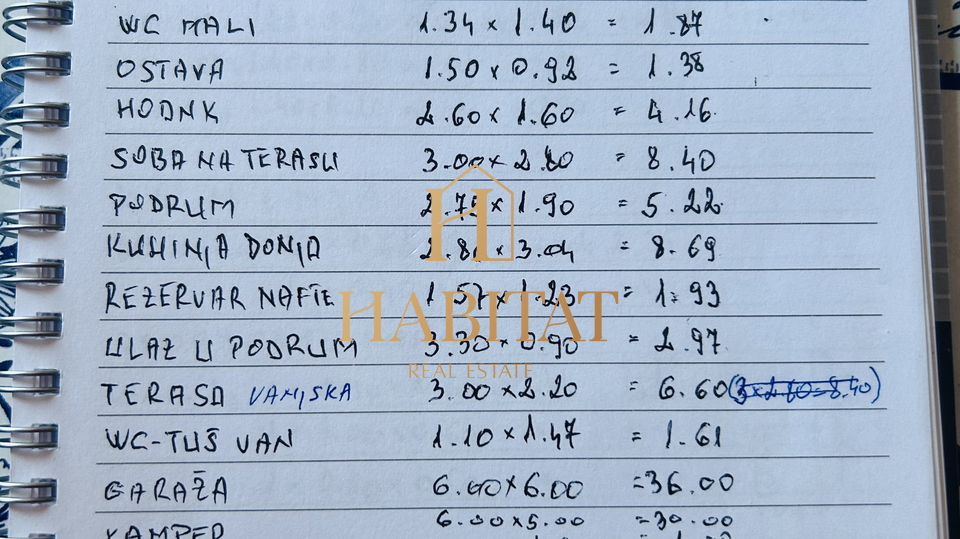 WC MALI 1.34 x 1.40 = 1.87
OSTAVA 1.50 x 0.92 = 1.38
HODNK 2.60 x 1.60 = 4.16
SOBA NA TERASU 3.00 x 2.80 = 8.40
PODRUM 2.75 x 1.90 = 5.22
KUHINJA DONJA 2.86 x 3.04 = 8.69
REZERVAR NAFTE 1.57 x 1.23 = 1.93
ULAZ U PODRUM 3.30 x 0.90 = 2.97
TERASA VANJSKA 3.00 x 2.20 = 6.60 (3 x 2.80 = 8.40)
WC-TUŠ VAN 1.10 x 1.47 = 1.61
GARAŽA 6.00 x 6.00 = 36.00
KAMPER 6.00 x 5.00 = 30.00
HABITAT
REAL ESTATE